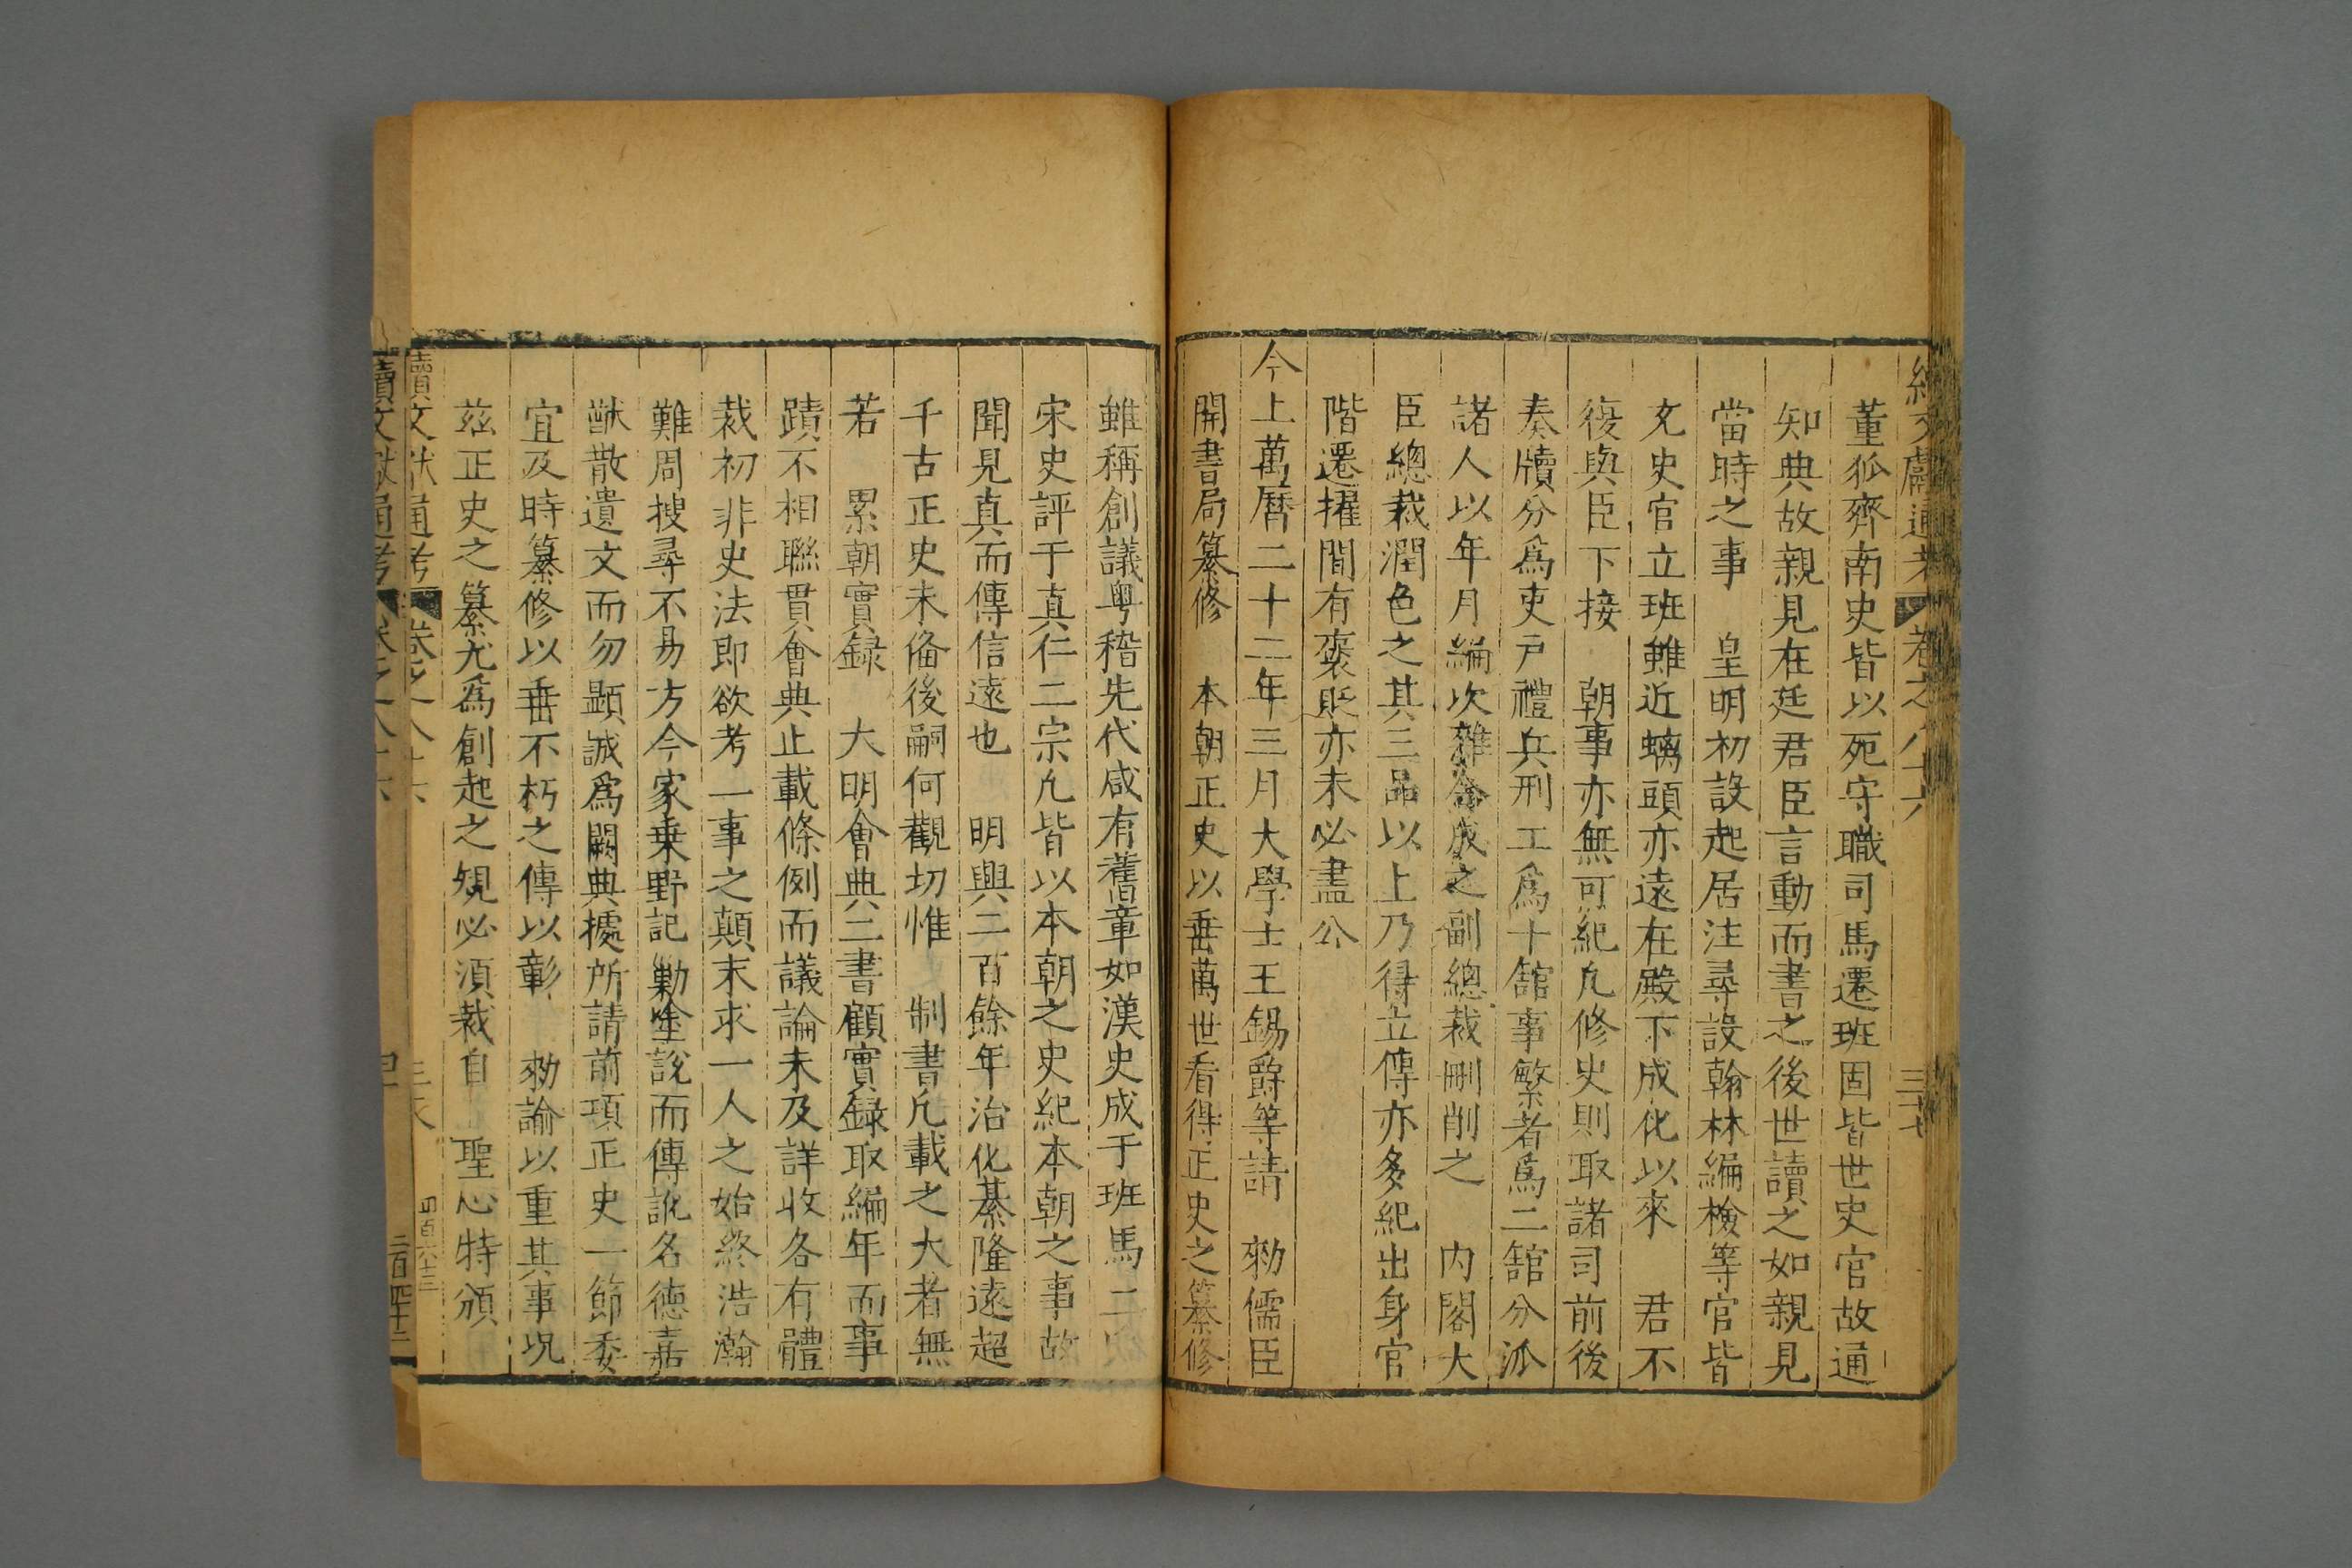 續文獻通考 卷之八十六 三十七
董狐齊南史皆以死守職司馬遷班固皆世史官故通
知典故親見在廷君臣言動而書之後世讀之如親見
當時之事 皇明初設起居注尋設翰林編檢等官皆
兊史官立班雖近螭頭亦遠在殿下成化以來 君不
復與臣下接 朝事亦無可紀凡修史則取諸司前後
奏牘分爲吏戶禮兵刑工爲十舘事繁者爲二舘分派
諸人以年月編次雜合成之副總裁刪削之 内閣大
臣總裁潤色之其三品以上乃得立傳亦多紀出身官
階遷擢間有褒貶亦未必盡公
今上萬曆二十二年三月大學士王錫爵等請 勑儒臣
開書局纂修 本朝正史以垂萬世看得正史之纂修
雖稱創議粤稽先代咸有舊章如漢史成于班馬二
宋史評于真仁二宗凡皆以本朝之史紀本朝之事故
聞見真而傳信遠也 明興二百餘年治化綦隆遠超
千古正史未俻後嗣何觀切惟 制書凡載之大者無
若 累朝實録 大明會典二書顧實録取編年而事
蹟不相聯貫會典止載條例而議論未及詳收各有體
裁初非史法即欲考一事之顛末求一人之始終浩瀚
難周搜尋不易方今家乗野記勦塗說而傳訛名德嘉
猷散遺文而勿顯誠爲闕典據所請前項正史一節委
宜及時纂修以垂不朽之傳以彰 勑諭以重其事况
兹正史之纂尤爲創起之䂓必須裁自 聖心特頒
續文獻通考 卷之八十六
四百六十三
續文獻通考
二百四十二